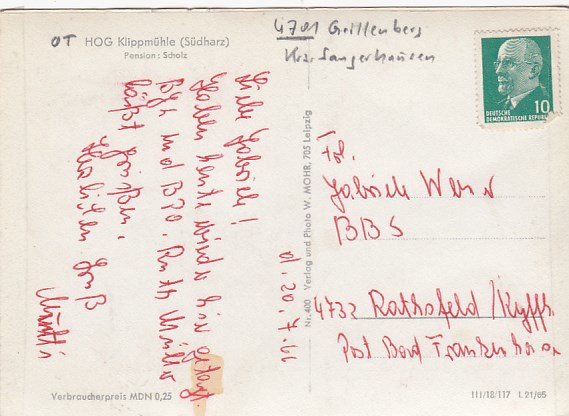 OT HOG Klippmühle (Südharz)
Pension: Scholz
4701 Grillenberg
Kreis Sangerhausen
DEUTSCHE
DEMOKRATISCHE REPUBLIK
10
Liebe Gabriele!
Haben heute wieder hier getagt.
BGL und BPO. Ruth Müller
läßt grüßen.
Herzlichen Gruß
Mutti
d. 20.7.66
Nr. 400 Verlag und Photo W. MOHR, 705 Leipzig
Frl.
Gabriele
BBS
4732 Rathsfeld/Kyffh.
Post Bad Frankenhausen
Verbraucherpreis MDN 0,25
III/18/117 L 21/65